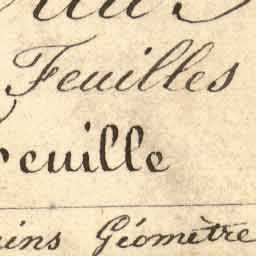 Feuilles
euille
ins Géomètre